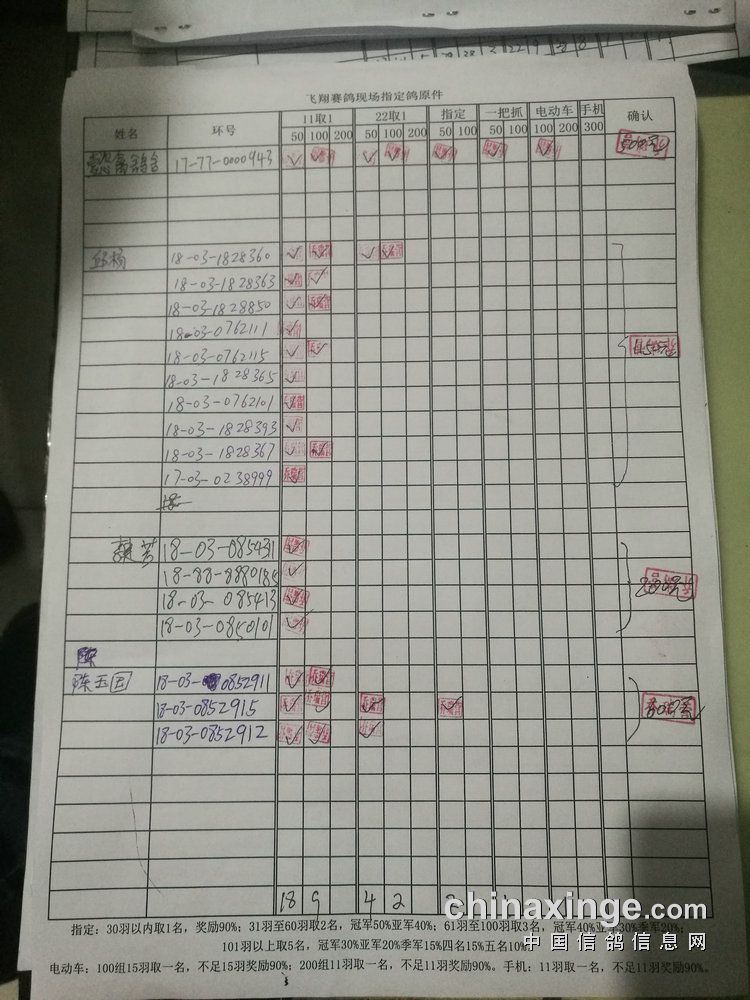 飞翔赛鸽现场指定鸽原件
姓名 环号 11取1 22取1 指定 一把抓 电动车 手机 确认
50 100 200 50 100 200 50 100 50 100 100 200 300
17-77-0000943
邱杨 18-03-1828360
18-03-1828363
18-03-1828850
18-03-0762111
18-03-0762115
18-03-1828365
18-03-0762101
18-03-1828393
18-03-1828367
17-03-0238999
18-03-085431
18-88-8880185
18-03-085413
18-03-0850101
陈
陈玉国 18-03-0852911
18-03-0852915
18-03-0852912
18 9 4 2
指定：30羽以内取1名，奖励90%；31羽至60羽取2名，冠军50%亚军40%；61羽至100羽取3名，冠军40%亚军30%季军20%；
101羽以上取5名，冠军30%亚军20%季军15%四名15%五名10%
电动车：100组15羽取一名，不足15羽奖励90%；200组11羽取一名，不足11羽奖励90%。手机：11羽取一名，不足11羽奖励90%。
chinaxinge.com
中国信鸽信息网